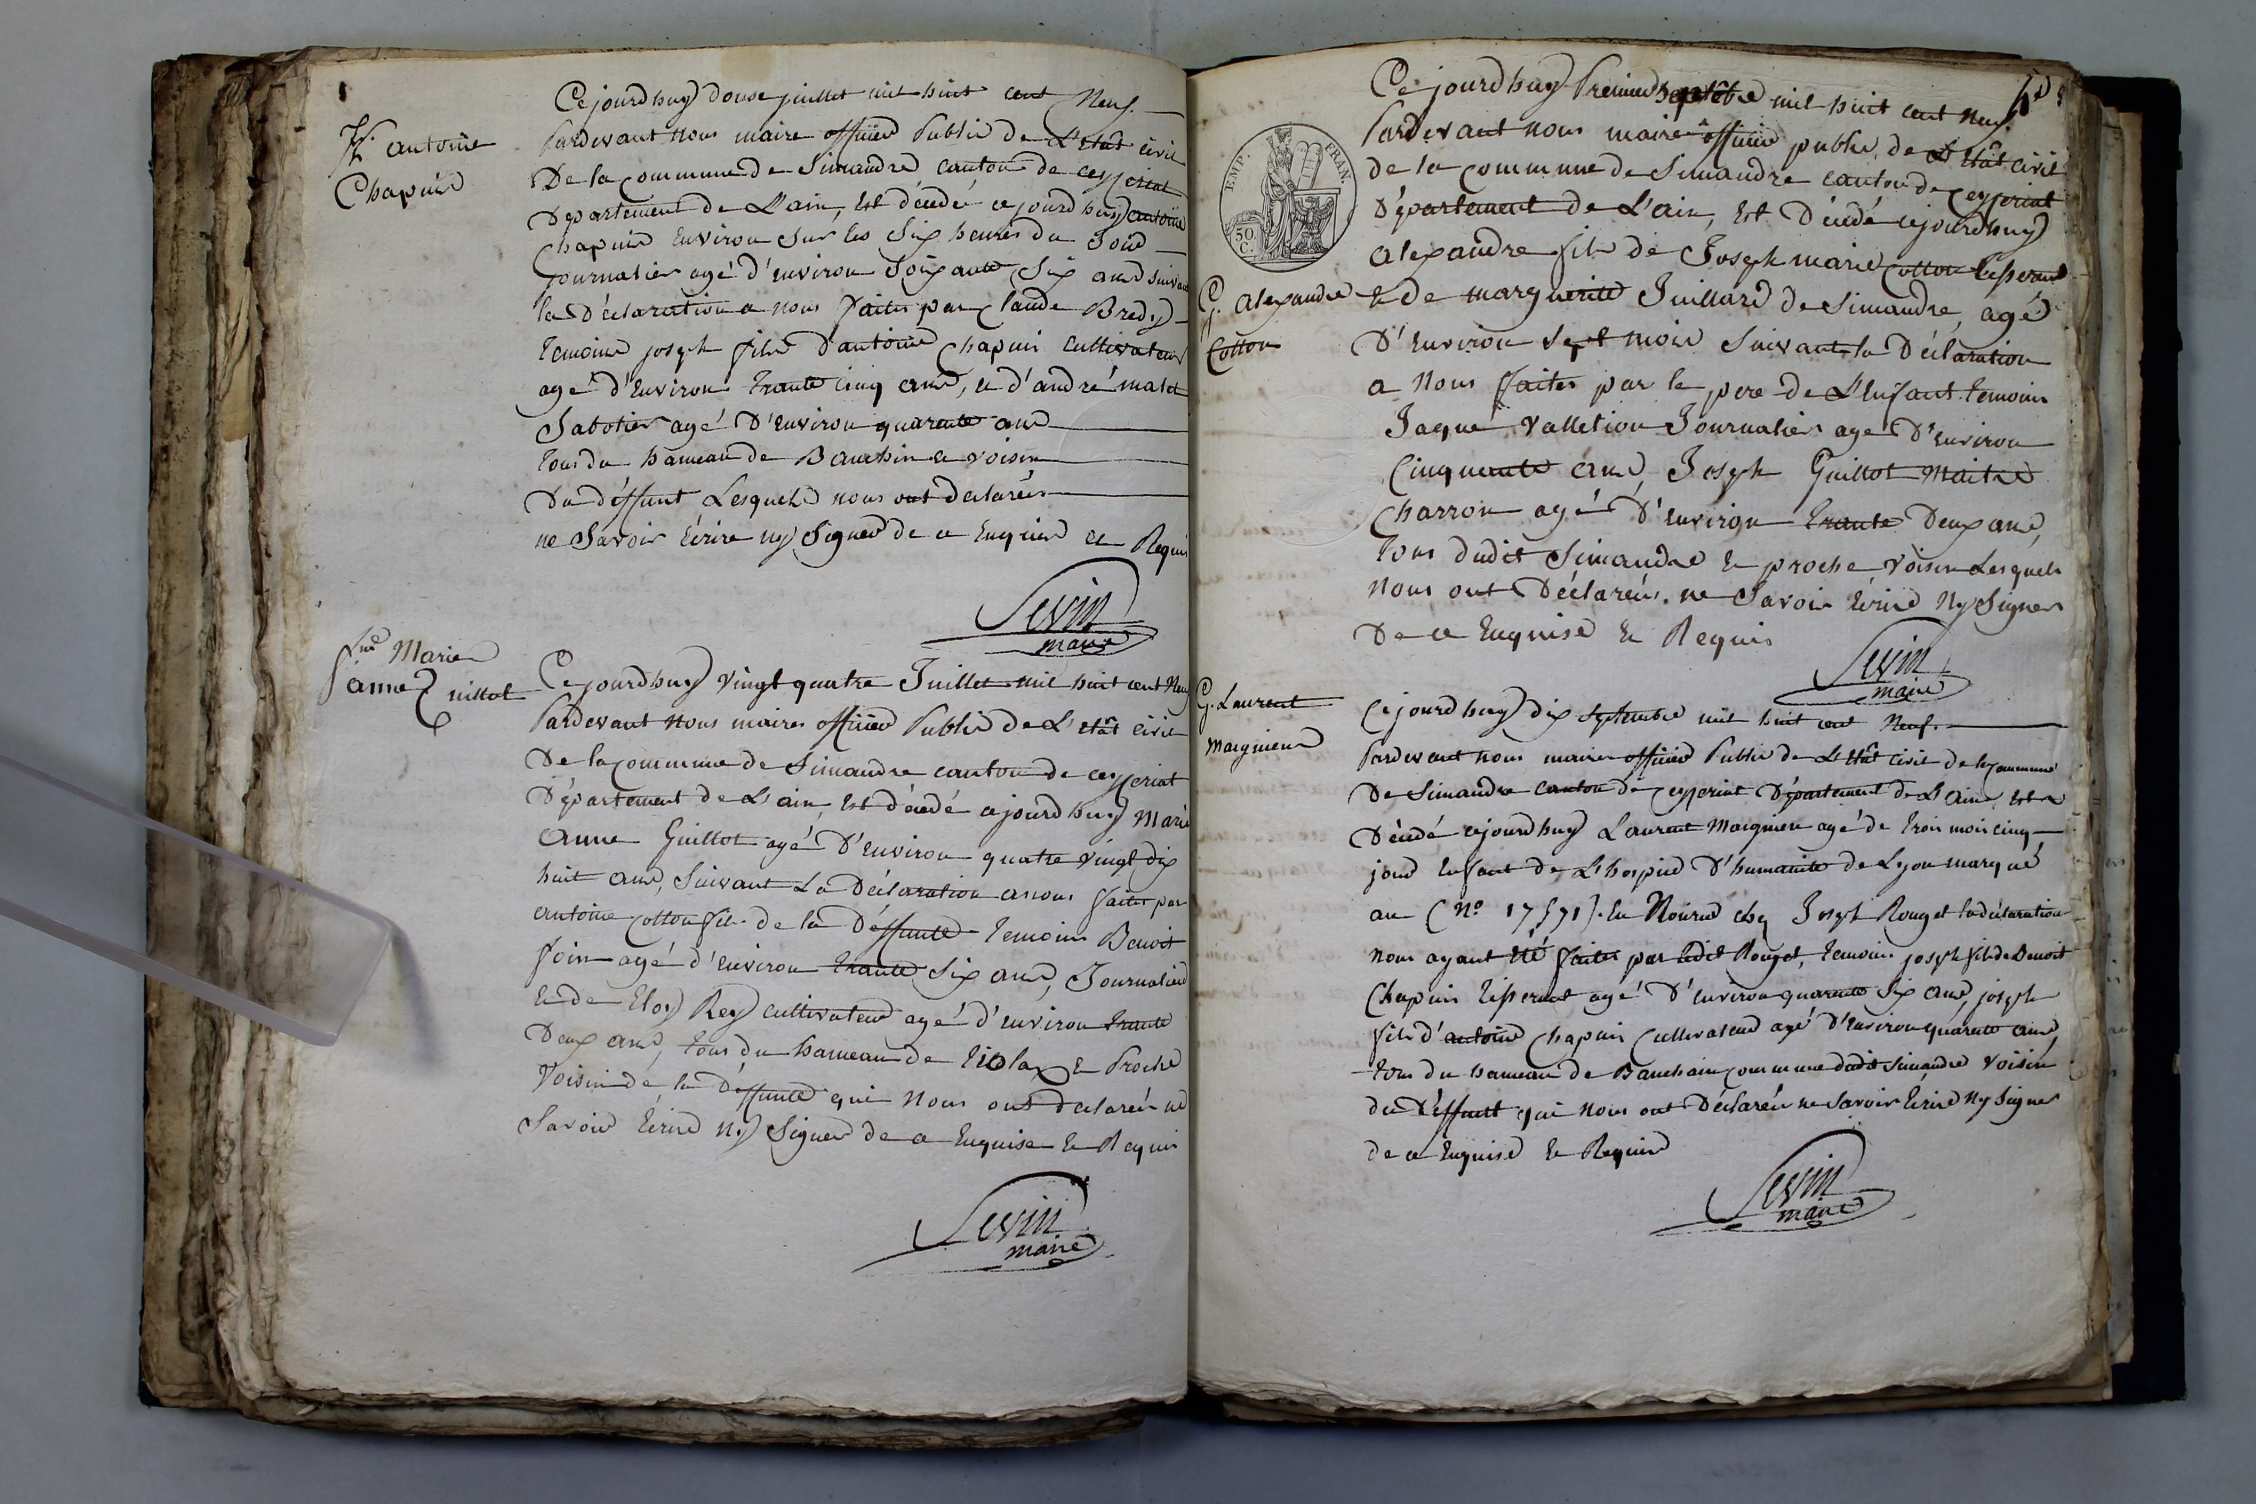 antoine
Chapuis
Cejourdhuy douse juillet mil huit cent Neuf.
Pardevant nous maire officier Public de L'etât civil
De la commune de Simandre canton de ceyzeriat
Département de L'ain, Est décédé cejourdhuy antoine
Chapuis Environ sur les Six heures du Soir
Journalier agé d'environ Soixante Six ans suivant
la Déclaration a nous faites par Claude Bredy
Temoins joseph fils d'antoine Chapuis cultivateur
agé d'Environ trante cinq ans, et d'andré malet
Sabotier agé D'environ quarante ans
tous du hameau de Banchin et voisin
Du déffunt Lesquels nous ont declarés
ne Savoir Ecrire ny Signer de ce Enquis et Requis
Sevin
maire
Marie
anne Guillot
Cejourdhuy vingt quatre Juillet mil huit cent Neuf
Pardevant nous maire officier Public de L'etât civil
De la commune de Simandre canton de ceyzeriat
Département de L'ain, Est décédé cejourdhuy Marie
Anne Guillot agé D'environ quatre vingt dix
huit ans, Suivant La Déclaration a nous faites par
antoine Cotton fils de la Déffunte Temoins Benoit
foin agé d'environ trante Six ans, Journalier
Et de Eloy Rey cultivateur agé d'environ trante
Deux ans, tous du hameau de Tiolax Et Proche
Voisin de la Déffunte qui Nous ont declarés ne
Savoir Ecrire Ny Signer de ce Enquise Et Requis
Sevin
maire
EMP. FRAN.
50 C.
G. alexandre
Cotton
Cejourdhuy Premier septembre mil huit cent Neuf.
Pardevant nous maire officier public de L'Etât civil
de la commune de Simandre canton de ceyzeriat
Département de L'ain, Est Décédé cejourdhuy
alexandre fils de Joseph marie Cotton tisserand
Et de marguerite Juillard de Simandre, agé
D'Environ sept mois Suivant la Déclaration
a Nous faites par le pere de L'Enfant temoins
Jaque Valletion Journalier agé D'environ
Cinquante ans, Joseph Guillot Maitre
Charron agé D'environ trante Deux ans,
Tous dudit Simandre Et proche Voisin Lesquels
Nous ont Déclarés ne Savoir Ecrire Ny Signer
De ce Enquise Et Requis
Sevin
maire
G. Laurent
maignien
Cejourdhuy dix septembre mil huit cent Neuf.
Pardevant nous maire officier Public de L'Etât civil de la commune
De Simandre canton de ceyzeriat Département de L'Ain, Est
Décédé cejourdhuy Laurent Maignien agé de trois mois cinq
jours Enfant de L'hospice D'humanité de Lyon marqué
au (No 17571). En Nourice chez Joseph Rouget la déclaration
nous ayant été faites par ledit Rouget, temoins joseph fils de Benoit
Chapuis tisserand agé D'environ quarante Six ans, joseph
fils d'antoine Chapuis Cultivateur agé D'Environ quarante ans,
tous du hameau de Banchain commune dudit Simandre voisin
du Déffunt qui Nous ont Déclarés ne Savoir Ecrire Ny Signer
de ce Enquise Et Requis
Sevin
maire